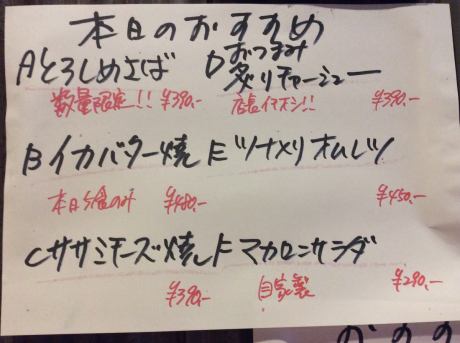 本日のおすすめ
Aとろしめさば
数量限定!! ¥390.-
Dおつまみ
炙りチャーシュー
店長イチオシ!! ¥390.-
Bイカバター焼
本日分のみ ¥480.-
Eツナメリオムレツ
¥450.-
Cササミチーズ焼
¥390.-
Fマカロニサラダ
自家製 ¥290.-